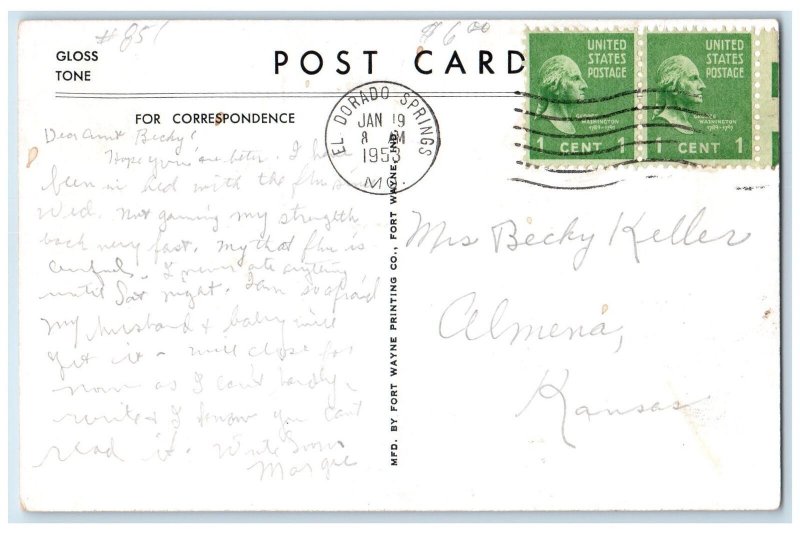 #851
$6.00
GLOSS
TONE
POST CARD
UNITED
STATES
POSTAGE
GEORGE
WASHINGTON
1789-1797
1 CENT 1
UNITED
STATES
POSTAGE
GEORGE
WASHINGTON
1789-1797
1 CENT 1
EL DORADO SPRINGS
JAN 19
8 AM
1953
MO.
FOR CORRESPONDENCE
Dear Aunt Becky!
Hope you're better. I have
been in bed with the flu since
Wed. Not gaining my strength
back very fast. My that flu is
I never ate anything
until Sat night. I am so afraid
my husband & baby will
get it - will close for
now as I can't hardly
write & I know you can't
read it. Write Soon
Margie
MFD. BY FORT WAYNE PRINTING CO., FORT WAYNE, IND.
Mrs Becky Keller
Almena,
Kansas